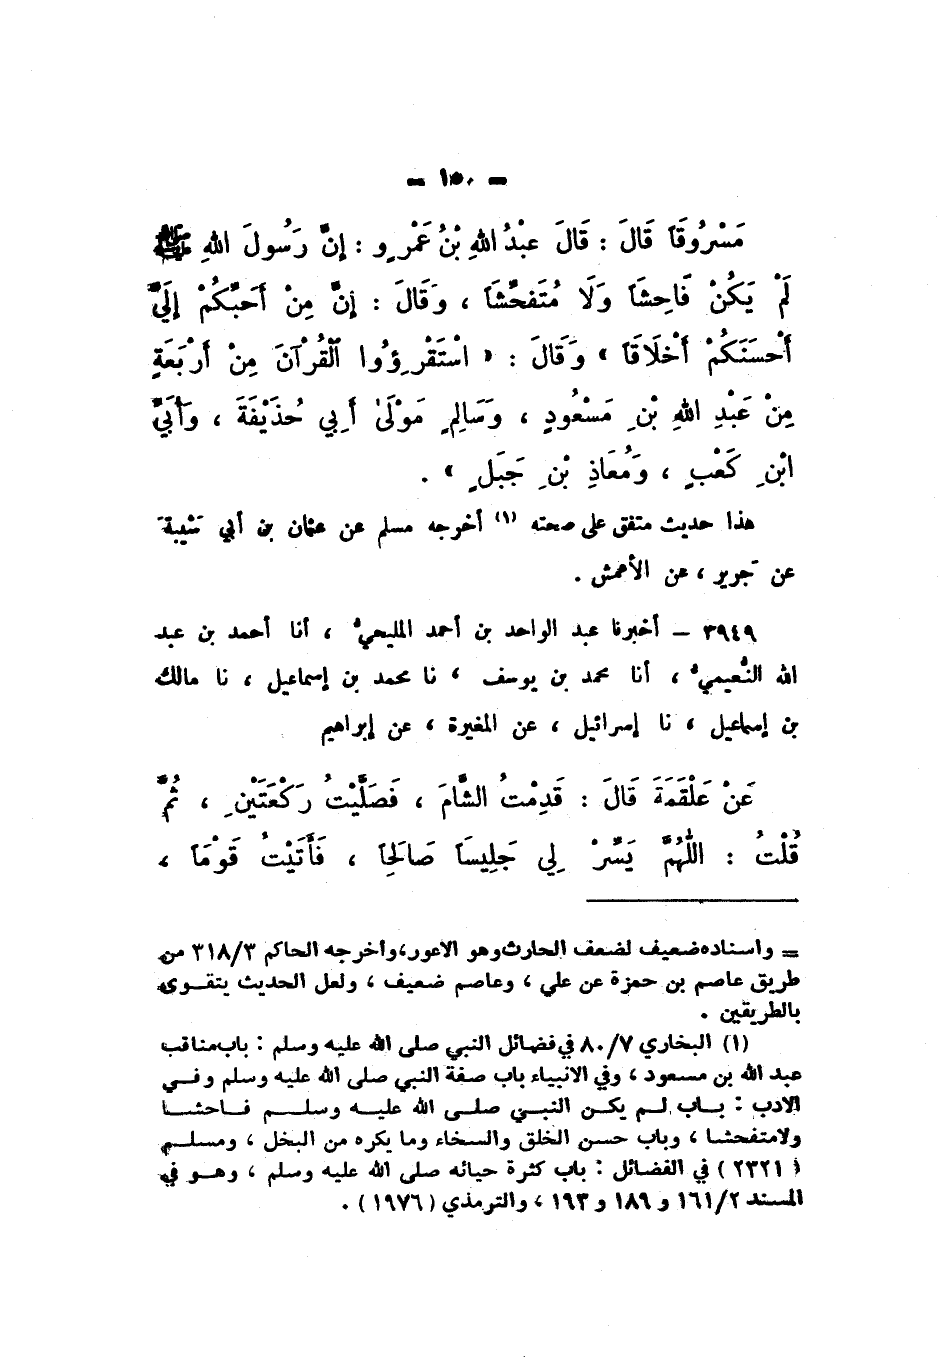 - ١٥٠ -
مَسْرُوقَاً قَالَ : قَالَ عَبْدُ اللهِ بْنُ عَمْرٍو : إِنَّ رَسُولَ اللهِ ﷺ
لَمْ يَكُنْ فَاحِشَاً وَلَا مُتَفَحِّشَاً ، وَقَالَ : إِنَّ مِنْ أَحَبِّكُمْ إِلَيَّ
أَحْسَنَكُمْ أَخْلَاقَاً » وَقَالَ : « اسْتَقْرِؤُوا الْقُرْآنَ مِنْ أَرْبَعَةٍ
مِنْ عَبْدِ اللهِ بْنِ مَسْعُودٍ ، وَسَالِمٍ مَوْلَىٰ أَبِي حُذَيْفَةَ ، وَأُبَيِّ
ابْنِ كَعْبٍ ، وَمُعَاذِ بْنِ جَبَلٍ » .
هذا حديث متفق على صحته (١) أخرجه مسلم عن عثمان بن أبي شيبة
عن جرير ، عن الأعمش .
٣٩٤٩ - أخبرنا عبد الواحد بن أحمد المليحيُّ ، أنا أحمد بن عبد
الله النُّعيميُّ ، أنا محمد بن يوسف ، نا محمد بن إسماعيل ، نا مالك
بن إسماعيل ، نا إسرائيل ، عن المغيرة ، عن إبراهيم
عَنْ عَلْقَمَةَ قَالَ : قَدِمْتُ الشَّامَ ، فَصَلَّيْتُ رَكْعَتَيْنِ ، ثُمَّ
قُلْتُ : اللَّهُمَّ يَسِّرْ لِي جَلِيسَاً صَالِحَاً ، فَأَتَيْتُ قَوْمَاً ،
= واسناده ضعيف لضعف الحارث وهو الاعور، وأخرجه الحاكم ٣١٨/٣ من
طريق عاصم بن حمزة عن علي ، وعاصم ضعيف ، ولعل الحديث يتقوى
بالطريقين .
(١) البخاري ٨٠/٧ في فضائل النبي صلى الله عليه وسلم : باب مناقب
عبد الله بن مسعود ، وفي الانبياء باب صفة النبي صلى الله عليه وسلم وفي
الادب : باب لم يكن النبي صلى الله عليه وسلم فاحشا
ولا متفحشا ، وباب حسن الخلق والسخاء وما يكره من البخل ، ومسلم
( ٢٣٢١ ) في الفضائل : باب كثرة حيائه صلى الله عليه وسلم ، وهو في
المسند ١٦١/٢ و ١٨٩ و ١٩٣ ، والترمذي ( ١٩٧٦ ) .